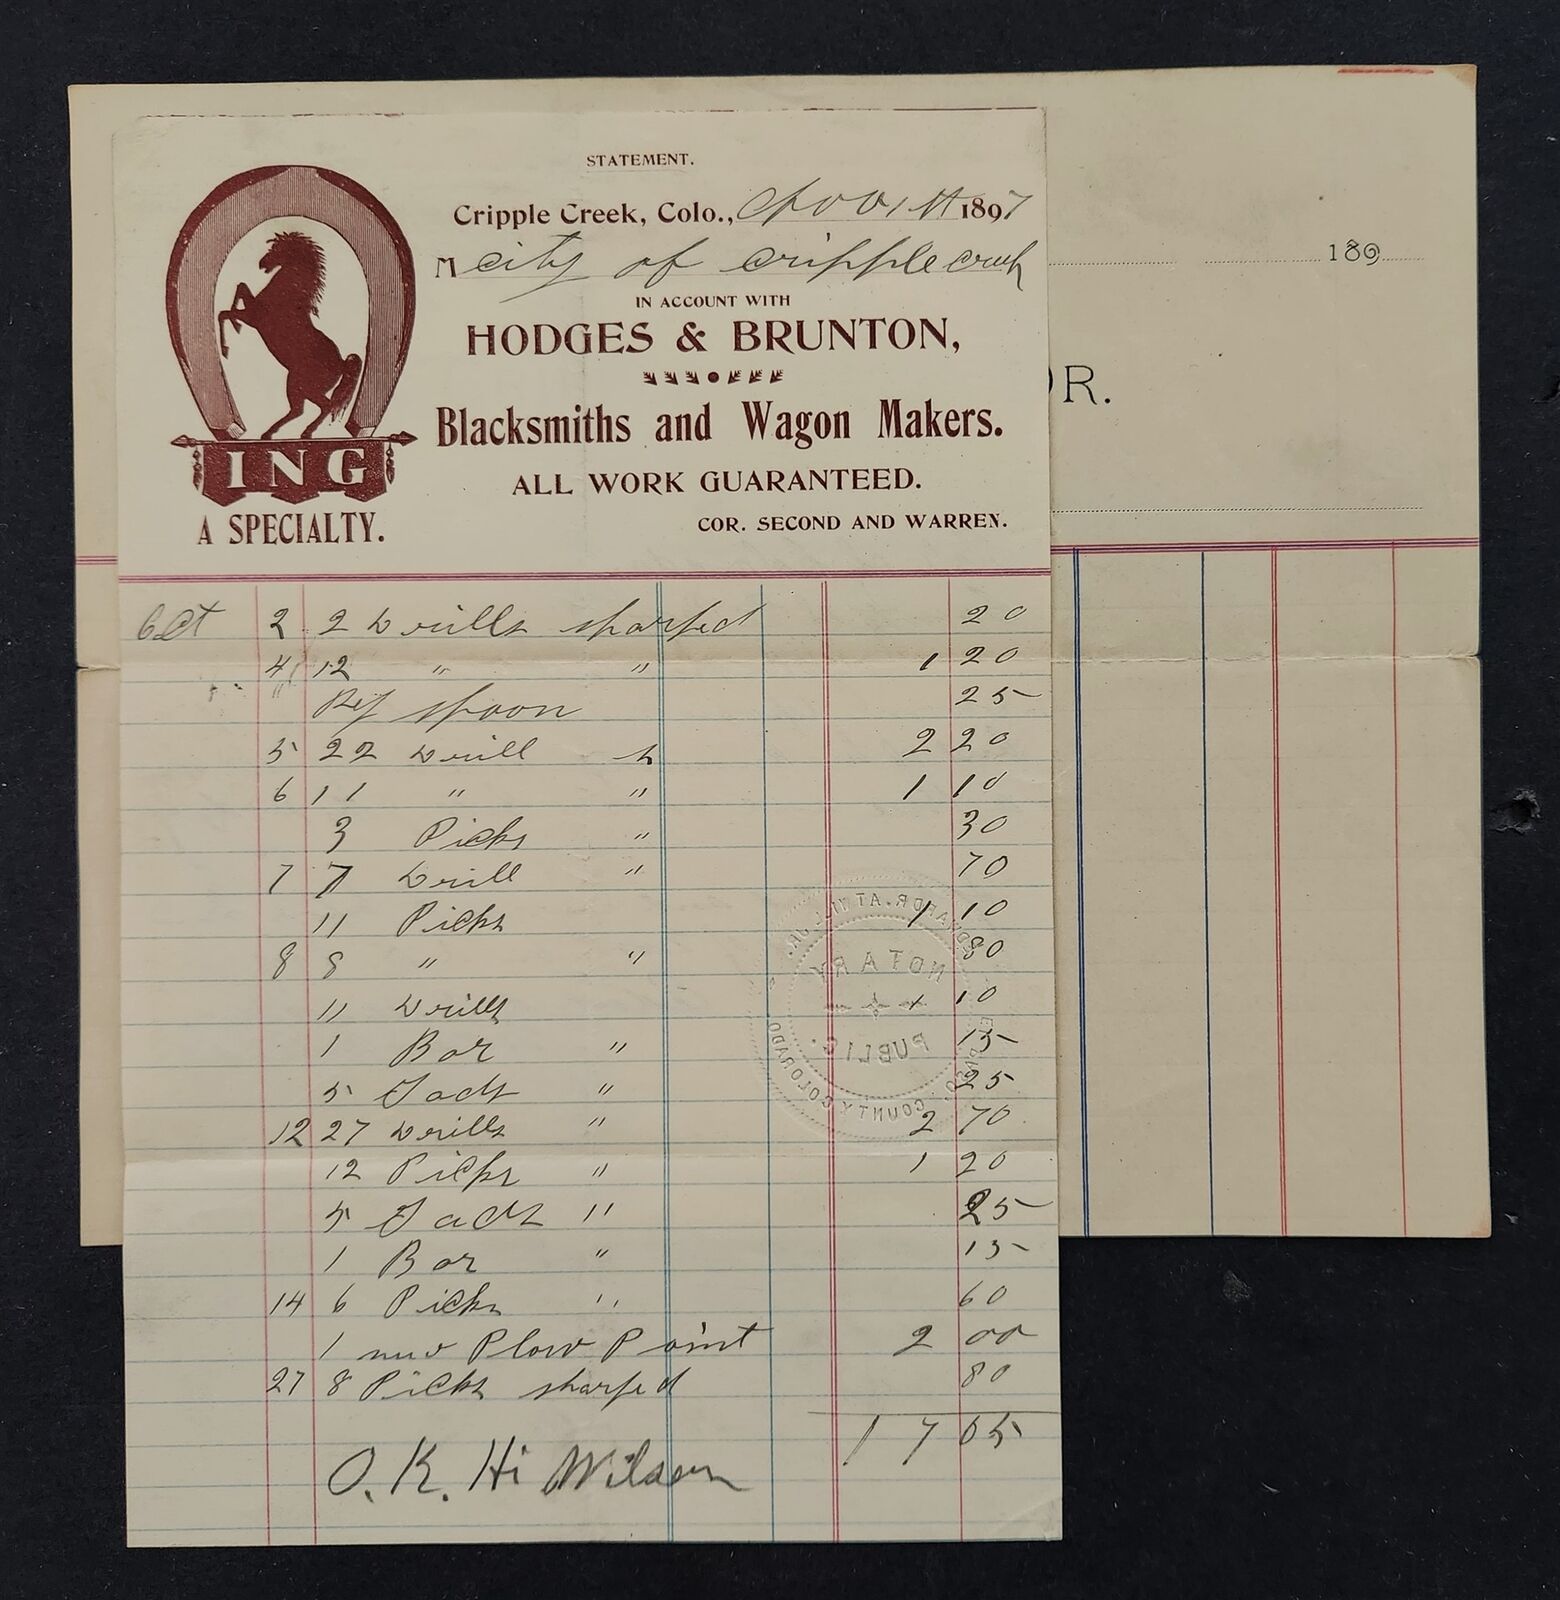 STATEMENT.
Cripple Creek, Colo., Nov 1st 1897
M city of cripple creek
189
IN ACCOUNT WITH
HODGES & BRUNTON,
OR.
Blacksmiths and Wagon Makers.
ALL WORK GUARANTEED.
COR. SECOND AND WARREN.
ING
A SPECIALTY.
Oct 2 2 Drills sharped 20
4 12 " " 1 20
Rep spoon 25
5 22 Drill " 2 20
6 11 " " 1 10
3 Picks " 30
7 7 Drill " 70
11 Picks 1 10
8 8 " " 80
11 Drills 1 10
1 Bar " 15
5 " 25
12 27 Drills " 2 70
12 Picks " 1 20
5 " 25
1 Bar " 15
14 6 Picks " 60
1 new Plow Point 2 00
27 8 Picks sharped 80
17 05
O.K. Hi Wilson
NOTARY
PUBLIC.
COUNTY COLORADO